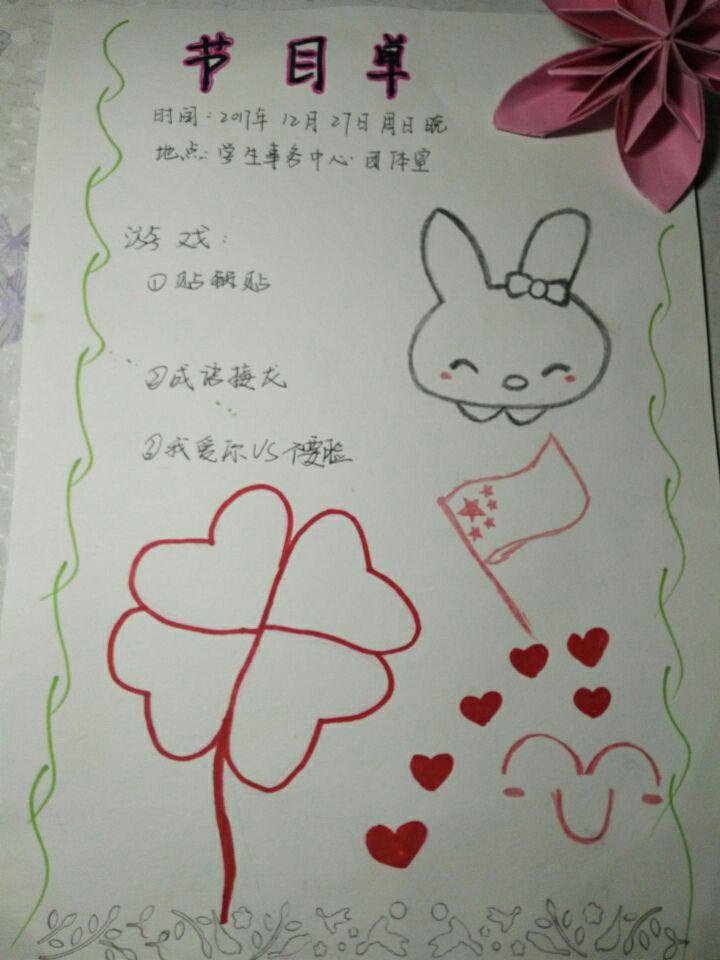 节目单
时间:2017年12月27日周日晚
地点:学生事务中心团体室
游戏:
①贴鼻贴
②成语接龙
③我爱你VS不要脸